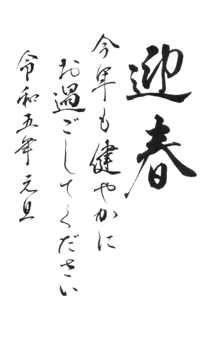 迎春
今年も健やかに
お過ごしてください
令和五年 元旦